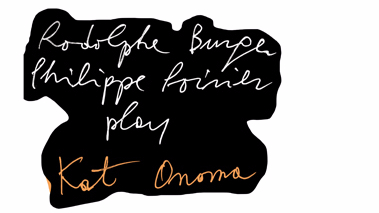 Rodolphe Burger
Philippe Poirier
play
Kat Onoma